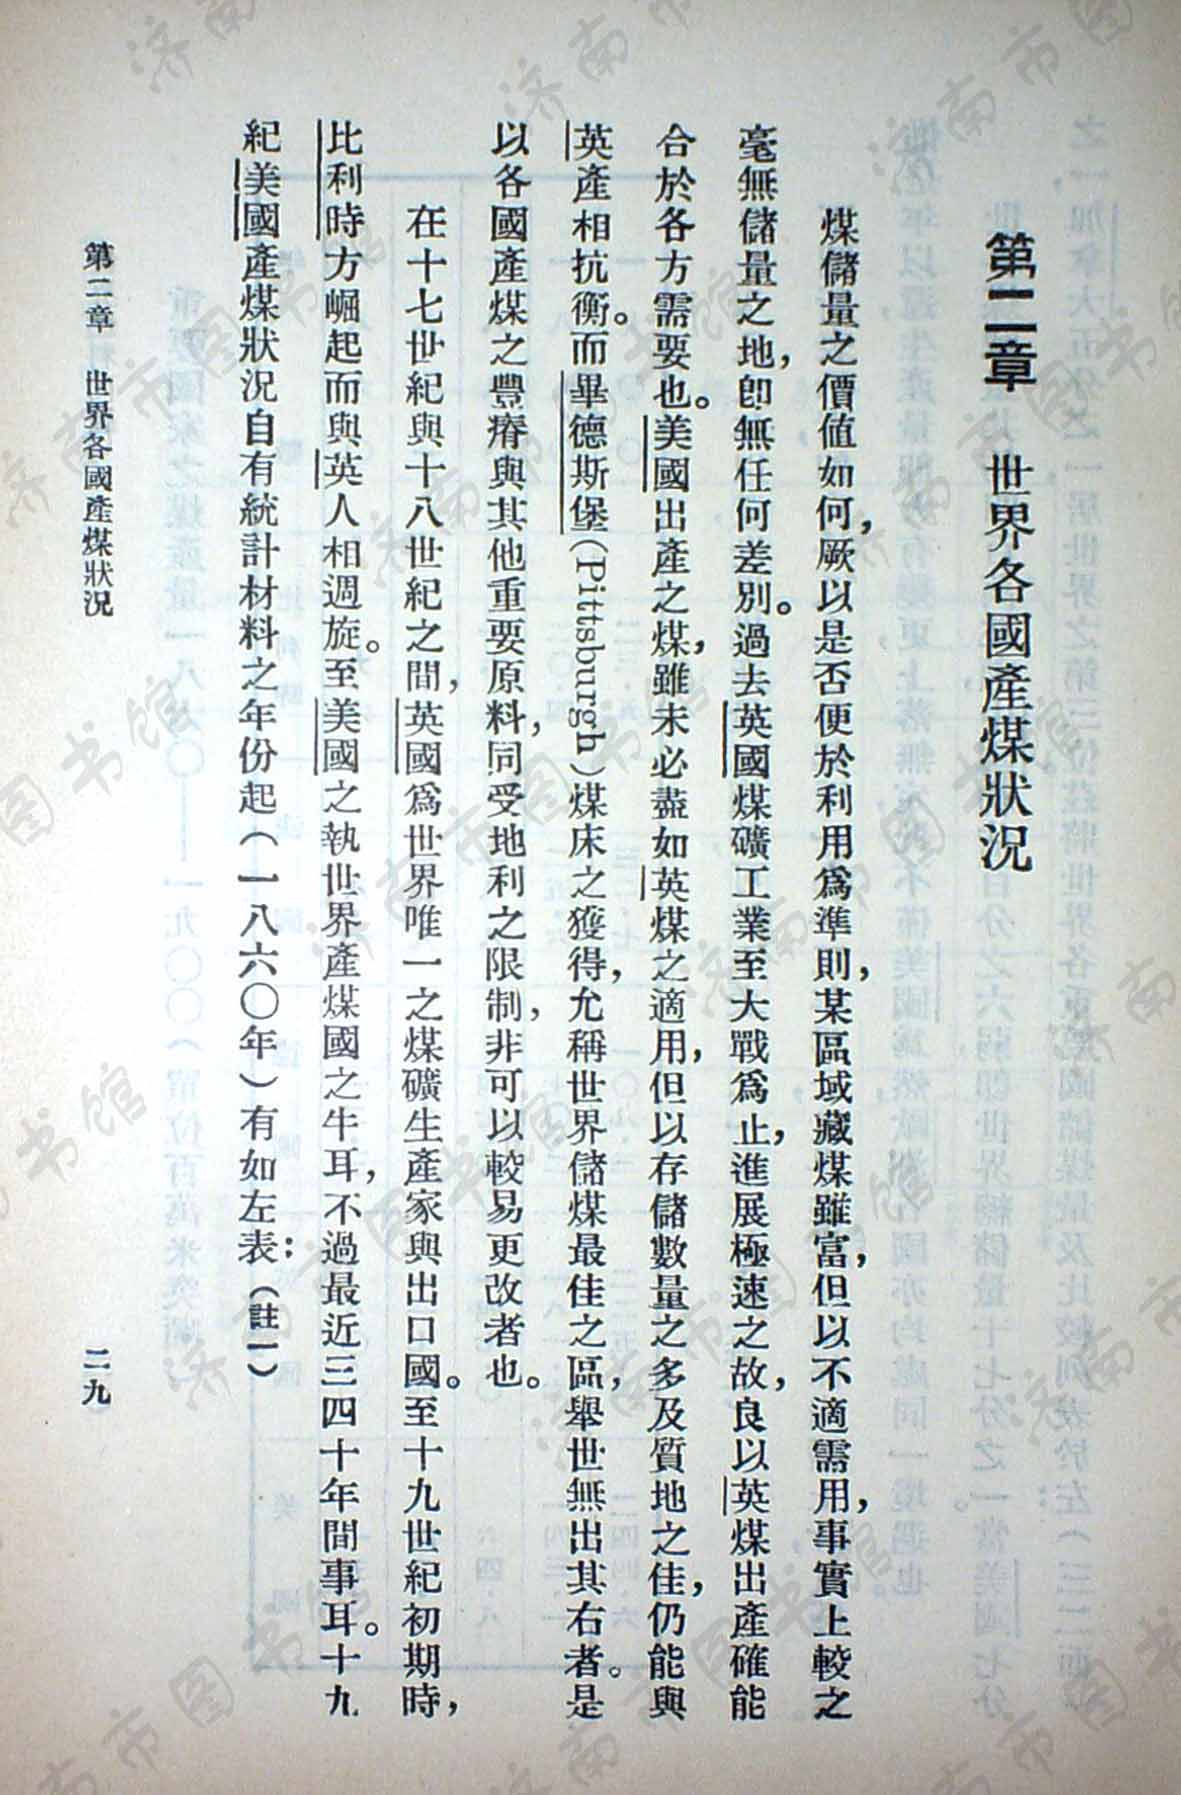 第二章　世界各國產煤狀況
煤儲量之價值如何，厥以是否便於利用爲準則，某區域藏煤雖富，但以不適需用，事實上較之
毫無儲量之地，卽無任何差別。過去英國煤礦工業至大戰爲止，進展極速之故，良以英煤出產確能
合於各方需要也。美國出產之煤，雖未必盡如英煤之適用，但以存儲數量之多及質地之佳，仍能與
英產相抗衡。而畢德斯堡(Pittsburgh)煤床之獲得，允稱世界儲煤最佳之區，舉世無出其右者。是
以各國產煤之豐瘠與其他重要原料，同受地利之限制，非可以較易更改者也。
在十七世紀與十八世紀之間，英國爲世界唯一之煤礦生產家與出口國。至十九世紀初期時，
比利時方崛起而與英人相週旋。至美國之執世界產煤國之牛耳，不過最近三四十年間事耳。十九
紀美國產煤狀況自有統計材料之年份起（一八六〇年）有如左表：（註一）
第二章　世界各國產煤狀況
二九